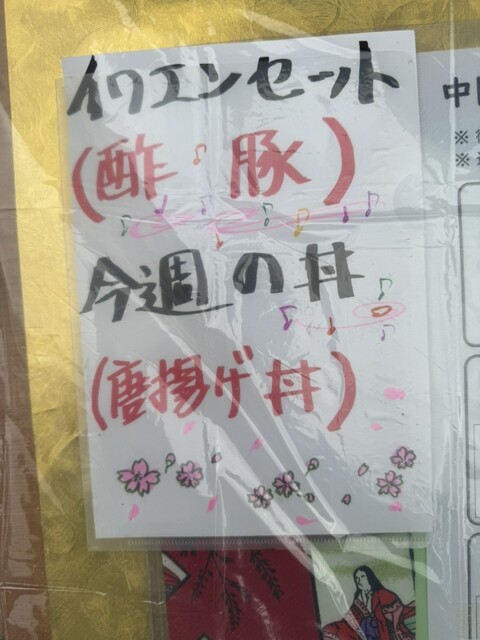 イワエンセット
(酢豚)
今週の丼
(唐揚げ丼)
中
※
※